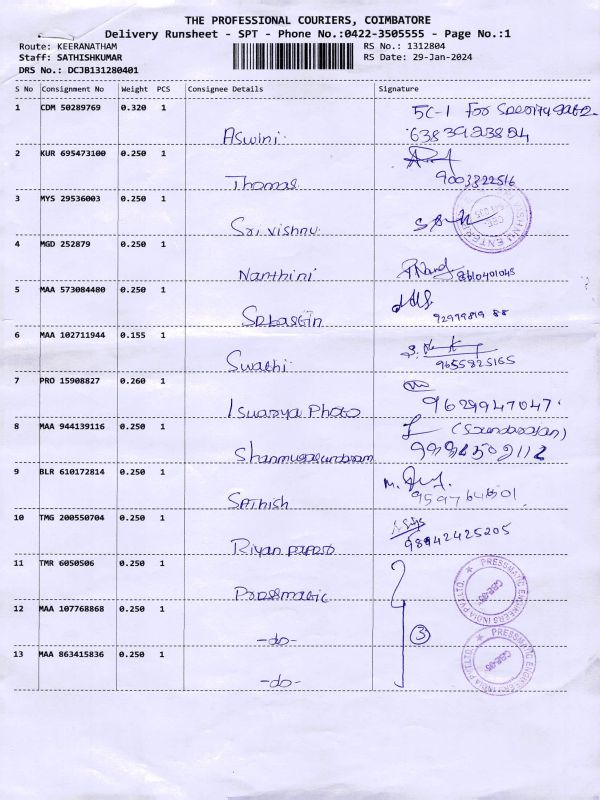 THE PROFESSIONAL COURIERS, COIMBATORE
Delivery Runsheet - SPT - Phone No.:0422-3505555 - Page No.:1
Route: KEERANATHAM
RS No.: 1312804
Staff: SATHISHKUMAR
RS Date: 29-Jan-2024
DRS No.: DCJB131280401
S No Consignment No Weight PCS Consignee Details Signature
1 CDM 50289769 0.320 1
5C-1 For
Aswini
2 KUR 695473100 0.250 1
Thomas
9003322516
3 MYS 29536003 0.250 1
Sri vishnu
4 MGD 252879 0.250 1
Nanthini
8610401045
5 MAA 573084480 0.250 1
6 MAA 102711944 0.155 1
Swathi
9655825165
7 PRO 15908827 0.260 1
Photo
9629947047
8 MAA 944139116 0.250 1
Shanmugasundaram
9 BLR 610172814 0.250 1
Sathish
10 TMG 200550704 0.250 1
Riyan
98942425205
11 TMR 6050506 0.250 1
Pressmatic
PRESSMATIC ENGINEERS INDIA PVT.LTD.
12 MAA 107768868 0.250 1
-do-
3
13 MAA 863415836 0.250 1
-do-
PRESSMATIC ENGINEERS INDIA PVT.LTD.